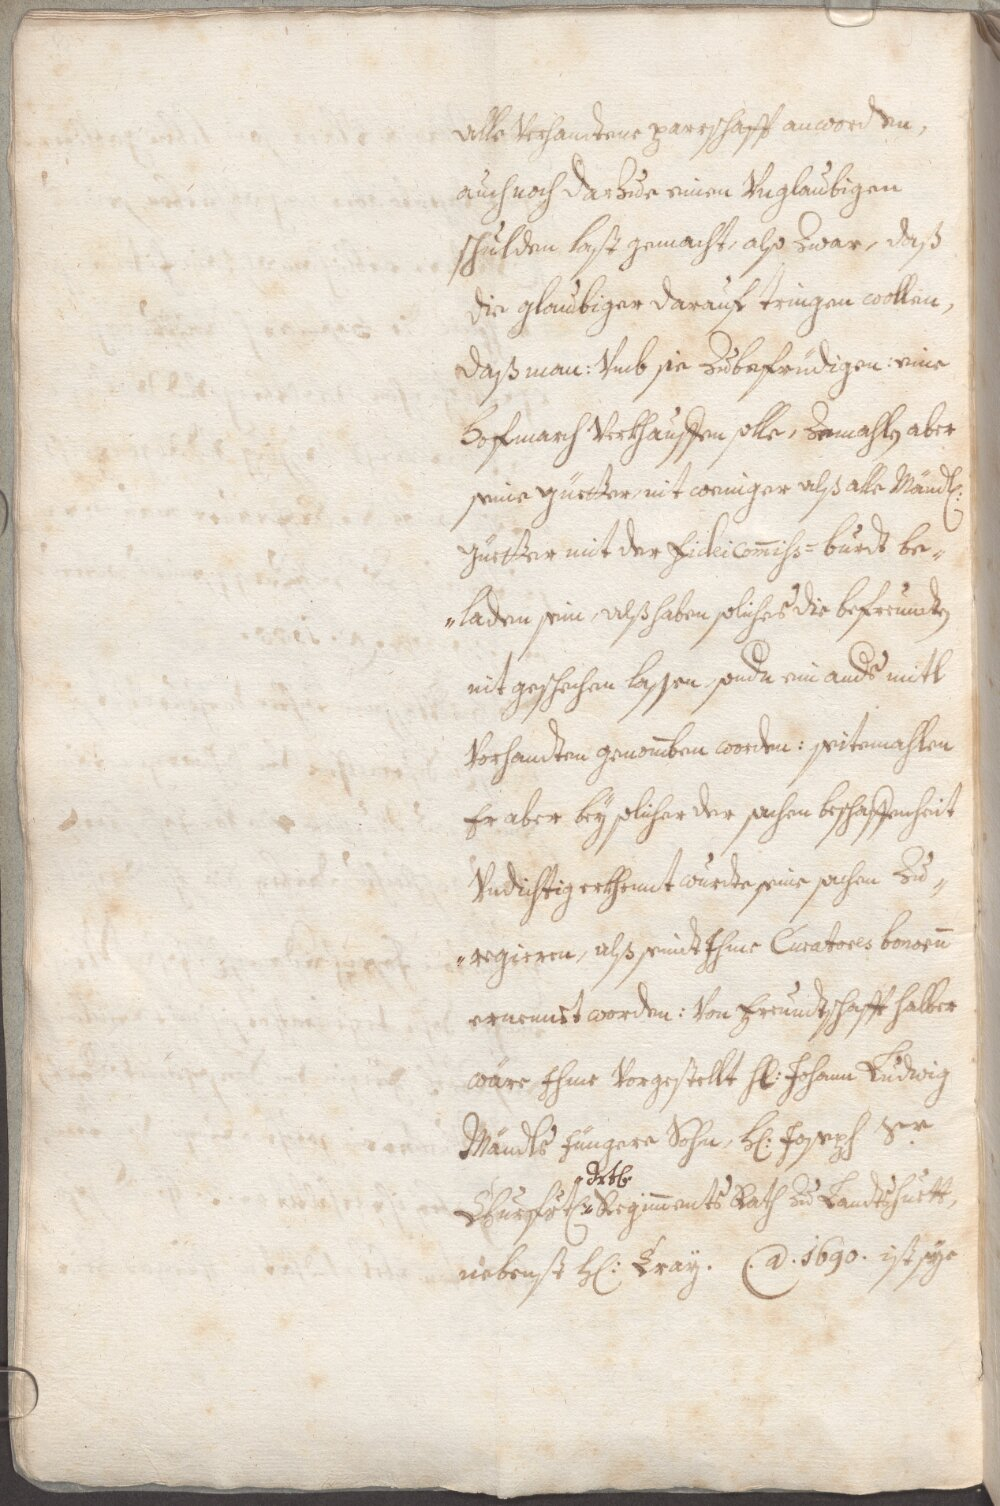 alle Verhandtene parrschafft anword en,
auch noch darzue einen Vnglaubigen
schulden last gemacht, also Zwar, daß
die glaubiger darauf tringen wollen,
daß man: Vmb sie Zubefridigen: eine
Hofmarch Verkhauffen solle, Zemahlen aber
seine güetter nit weniger alß alle Mändl:
güetter mit der fideicommihs= burdt be„
„laden sein, alß haben solches die befreundten
nit geschechen lassen, sondn ein ands mitl
Vorhandten genomben worden: seitemahlen
Er aber bey solicher der sachen beschaffenheit
Vndichtig erkhennt wurdte seine sachen Zu„
„regieren, alß seindt Ihme Curatores bonorum
ernennst worden: Von freundtschafft halber
wäre Ihme Vorgestellt H: Johann Ludwig
Mändls Jüngere Sohn, H: Joseph Sr
drtl:
Churfrtl: Regimments Rath Zu Landtshuett,
nebenst H: Cray. A: 1690. ist sye